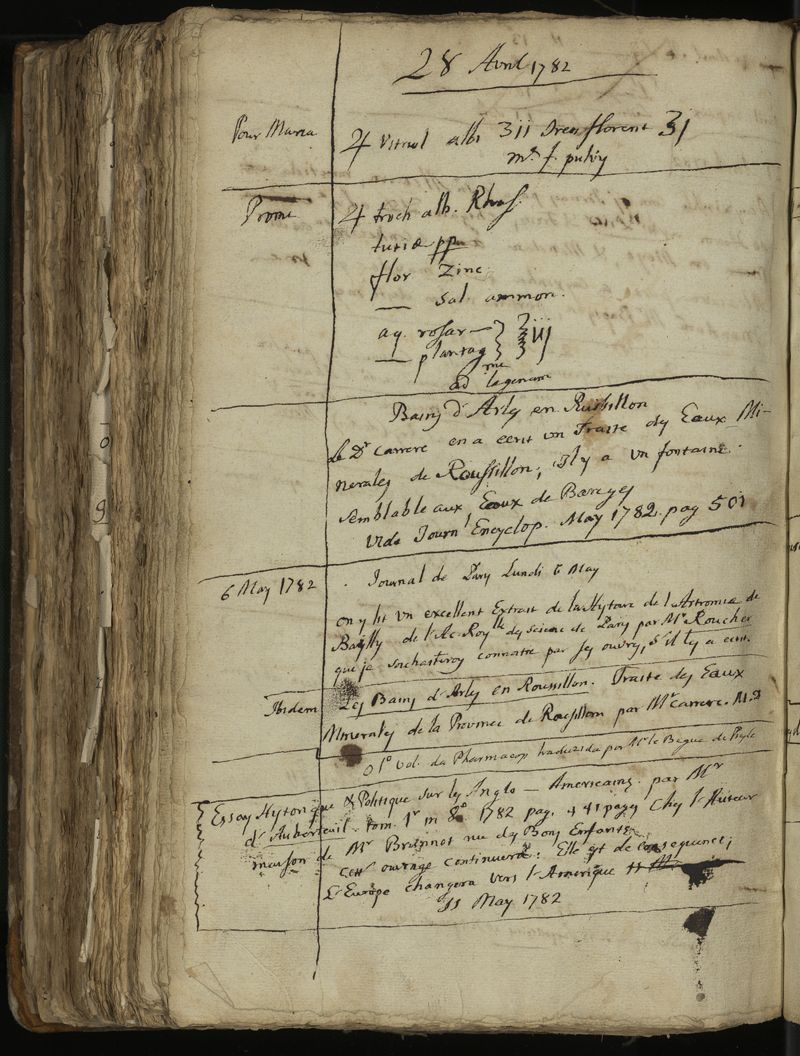 28 Avril 1782
Pour Maria
♃ Vitriol alb ʒii Ireos florent ʒj
m. f. pulv
Promi
♃ troch alb. Rhas.
tutiæ pp
flor Zinc
— Sal ammon.
aq. rosar —
— plantag
ad lagenam
Bains d'Arles en Russillon
Le Dr Carrere en a ecrit un Traite des Eaux Mi-
nerales de Roussillon; Il y a un fontaine
semblable aux Eaux de Bareges
vide Journl Encyclop. May 1782. pag 501
6 May 1782
Journal de Paris Lundi 6 May
on y lit un excellent Extrait de la Hystoire de l'Astromie de
Bailly de l'Ac. Roylle des science de Paris par Mr Roucher
que je souhasteroy connoitre par ses ouvrs, s'il ly a ecrit.
Ibidem
Les Bains d'Arles en Roussillon. Traite des Eaux
Minerales de la Province de Roussillon par Mr Carrere. M.D
O 1º Vol. da Pharmacop traduzida por Mr le Begue de Presle
Essay Hystorique & Politique sur les Anglo - Americains par Mr
d'Auberteuil. tom. 1r in 8º 1782 pag. 441 pages Chez l'Auteur
maison de Mr Brunnet rue des Bons Enfants
cett ouvrage continuera: Elle est de consequence;
L'Europe changera vers l'Amerique
11 May 1782